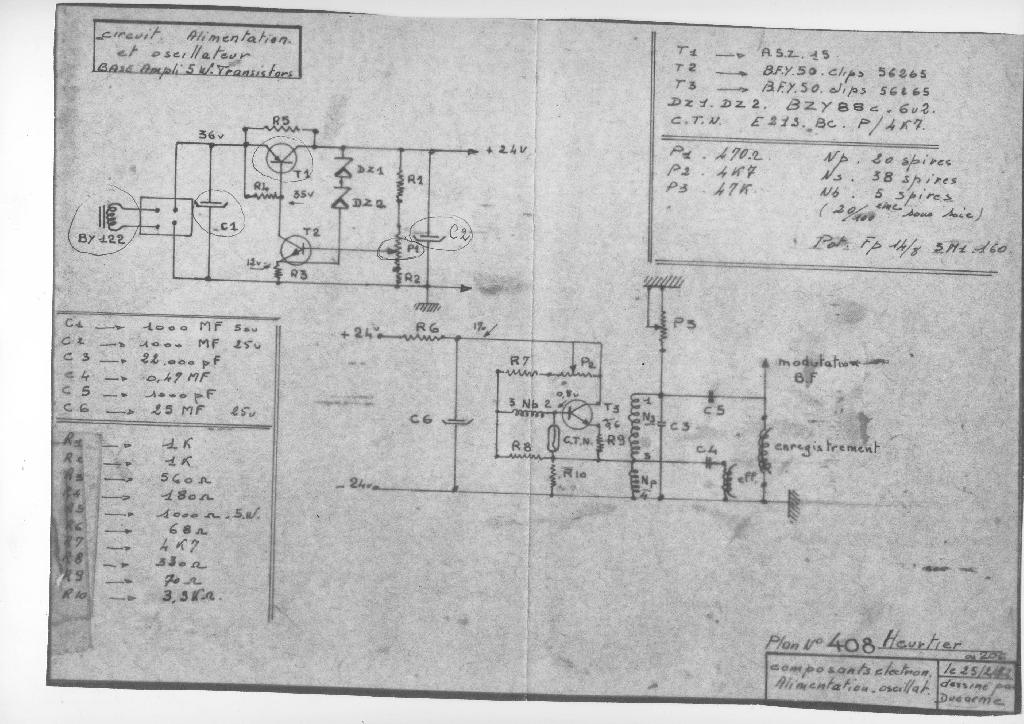 circuit Alimentation
et oscillateur
BASE Ampli 5 W. Transistors
T1 → A.S.Z. 15
T2 → B.F.Y. 50. clips 56265
T3 → B.F.Y. 50. clips 56265
DZ1. DZ2. BZY88c. 6v2.
C.T.N. E213. BC. P/4K7.
P1 . 470Ω
P2 . 4K7
P3 . 47K
Np . 20 spires
Ns . 38 spires
Nb . 5 spires
(20/100 ème sous soie)
Pot. Fp 14/8
160
36v
R5
T1
R4
35v
DZ1
DZ2
R1
+ 24V
C1
BY 122
T2
P1
C2
12v
R3
R2
C1 → 1000 MF 50v
C2 → 1000 MF 25v
C3 → 22.000 pF
C4 → 0,47 MF
C5 → 1000 pF
C6 → 25 MF 25v
R1 → 1K
R2 → 1K
R3 → 560Ω
R4 → 180Ω
R5 → 1000Ω. 5.W.
R6 → 68Ω
R7 → 4K7
R8 → 330Ω
R9 → 70Ω
R10 → 3,3KΩ.
+ 24v
R6
17v
P3
R7
P2
modulation
B.F
3 Nb 2
0,8v
T3
C6
C.T.N.
R9
C3
C5
C4
R8
R10
Np
eff.
enregistrement
- 24v
Plan N° 408 Heurtier
composants électron.
Alimentation. oscillat.
dessiné par
Ducarme